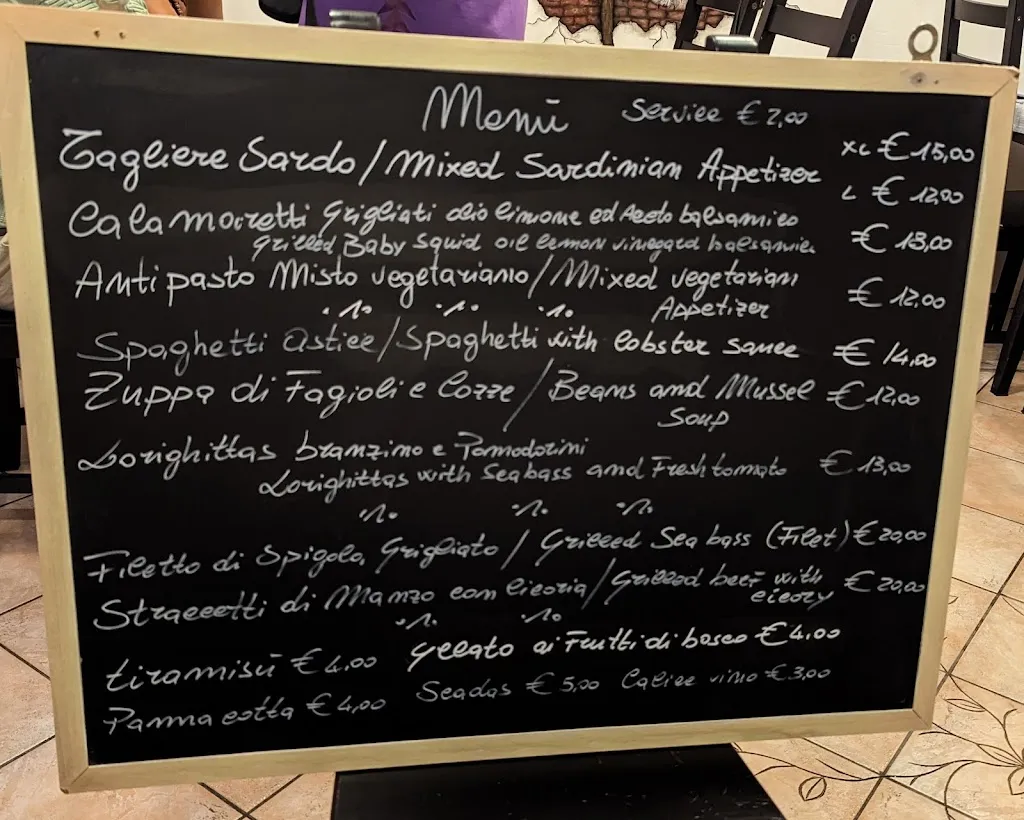 Menū Service € 2,00
Tagliere Sardo/Mixed Sardinian Appetizer XL € 15,00
L € 12,00
Calamaretti Grigliati olio limone ed Aceto balsamico € 13,00
Grilled Baby Squid oil lemon vinegard balsamic
Antipasto Misto vegetariano/Mixed vegetarian € 12,00
Appetizer
Spaghetti astice/Spaghetti with lobster sauce € 14,00
Zuppa di Fagioli e Cozze/Beans and Mussel € 12,00
Soup
Lorighittas branzino e Pomodorini
Lorighittas with Seabass and Fresh tomato € 13,00
Filetto di Spigola Grigliato/Grilled Sea bass (Filet) € 20,00
Straccetti di Manzo con cicoria/Grilled beef with € 20,00
cicory
tiramisū € 4,00 gelato ai Frutti di bosco € 4,00
Panna cotta € 4,00 Seadas € 5,00 Calice vino € 3,00